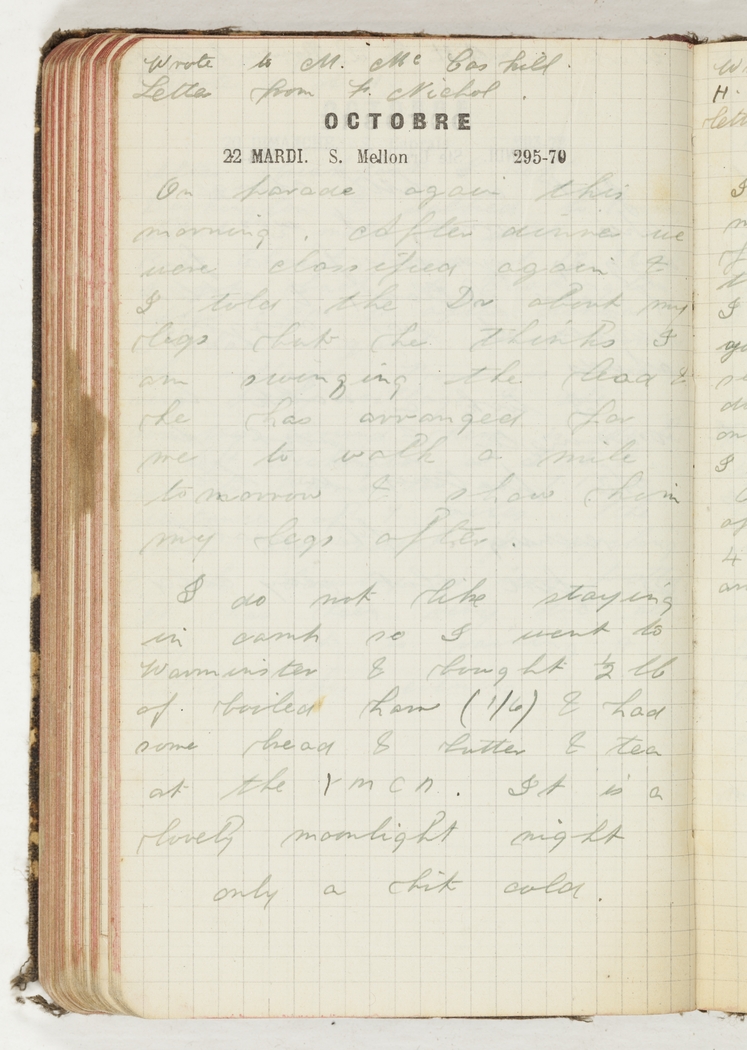 Wrote to M. McCaskill.
Letter from F. Nichol.
OCTOBRE
22 MARDI. S. Mellon 295-70
On parade again this
morning. After dinner we
were classified again &
I told the Dr about my
legs but he thinks I
am swinging the lead &
he has arranged for
me to walk a mile
tomorrow & show him
my legs after.
I do not like staying
in camp so I went to
Warminster & bought ½ lb
of boiled ham (1/6) & had
some bread & butter & tea
at the YMCA. It is a
lovely moonlight night
only a bit cold.